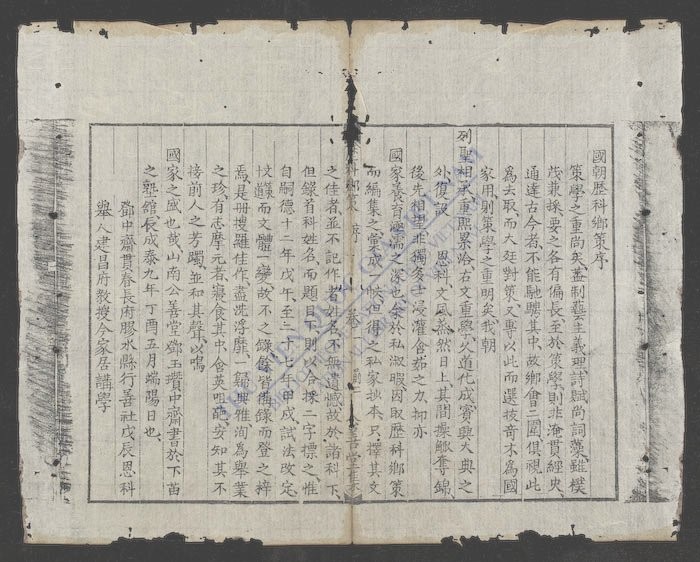 國朝歷科鄉策序
策學之重尚矣盖制藝主義理詩賦尚詞藻雖樸
茂兼採要之各有偏長至於策學則非淹貫經史
通達古今者不能馳騁其中故鄉會二圍俱視此
為去取而大廷對策又專以此而選棱奇木為國
家用則策學之重明矣我朝
列聖相承重熙累洽右文重學久道化成賓興大典之
外復設 恩科文風蒸然日上其間操觚奪錦
後先相望非獨多士浸灌含茹之力抑亦
國家養育 之深也余於私淑暇因取歷科鄉策
而編集之彙成 帙但得之私家抄本只擇其文
之佳者並不記作者姓名不無遺憾故於諸科下
但錄首科姓名而題目下則以合採二字標之惟
自嗣德十二年戊午至二十七年甲戌試法改定
文 而文體一變故不之錄餘皆備錄而登之梓
焉是冊搜羅佳作盡洗浮靡一 典雅洵為舉業
之珍有志摩元者寢食其中含英咀 安知其不
接前人之芳躅並和其聲以鳴
國家之盛也哉山南公善堂鄧玉瓚中齋書於下苗
之 館辰成泰九年丁酉五月端陽日也
鄧中齋貫春長府膠水縣行善社戊辰恩科
舉人建昌府教授今家居講學
科鄉策 序 卷一
善堂